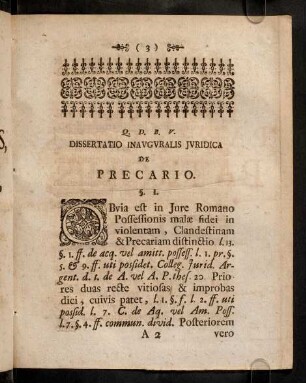 ( 3 )
Q. D. B. V.
DISSERTATIO INAVGVRALIS JVRIDICA
DE
PRECARIO.
§. I.
OBvia est in Jure Romano
Possessionis malæ fidei in
violentam, Clandestinam
& Precariam distinctio. l. 13.
§. 1. ff. de acq. vel amitt. possess. l. 1. pr. §.
5. & 9. ff. uti possidet. Colleg. Jurid. Ar-
gent. d. t. de A. vel A. P. thes. 20. Prio-
res duas recte vitiosas & improbas
dici, cuivis patet, l. 1. §. f. l. 2. ff. uti
possid. l. 7. C. de Aq. vel Am. Poss.
l. 7. §. 4. ff. commun. divid. Posteriorem
A 2 vero